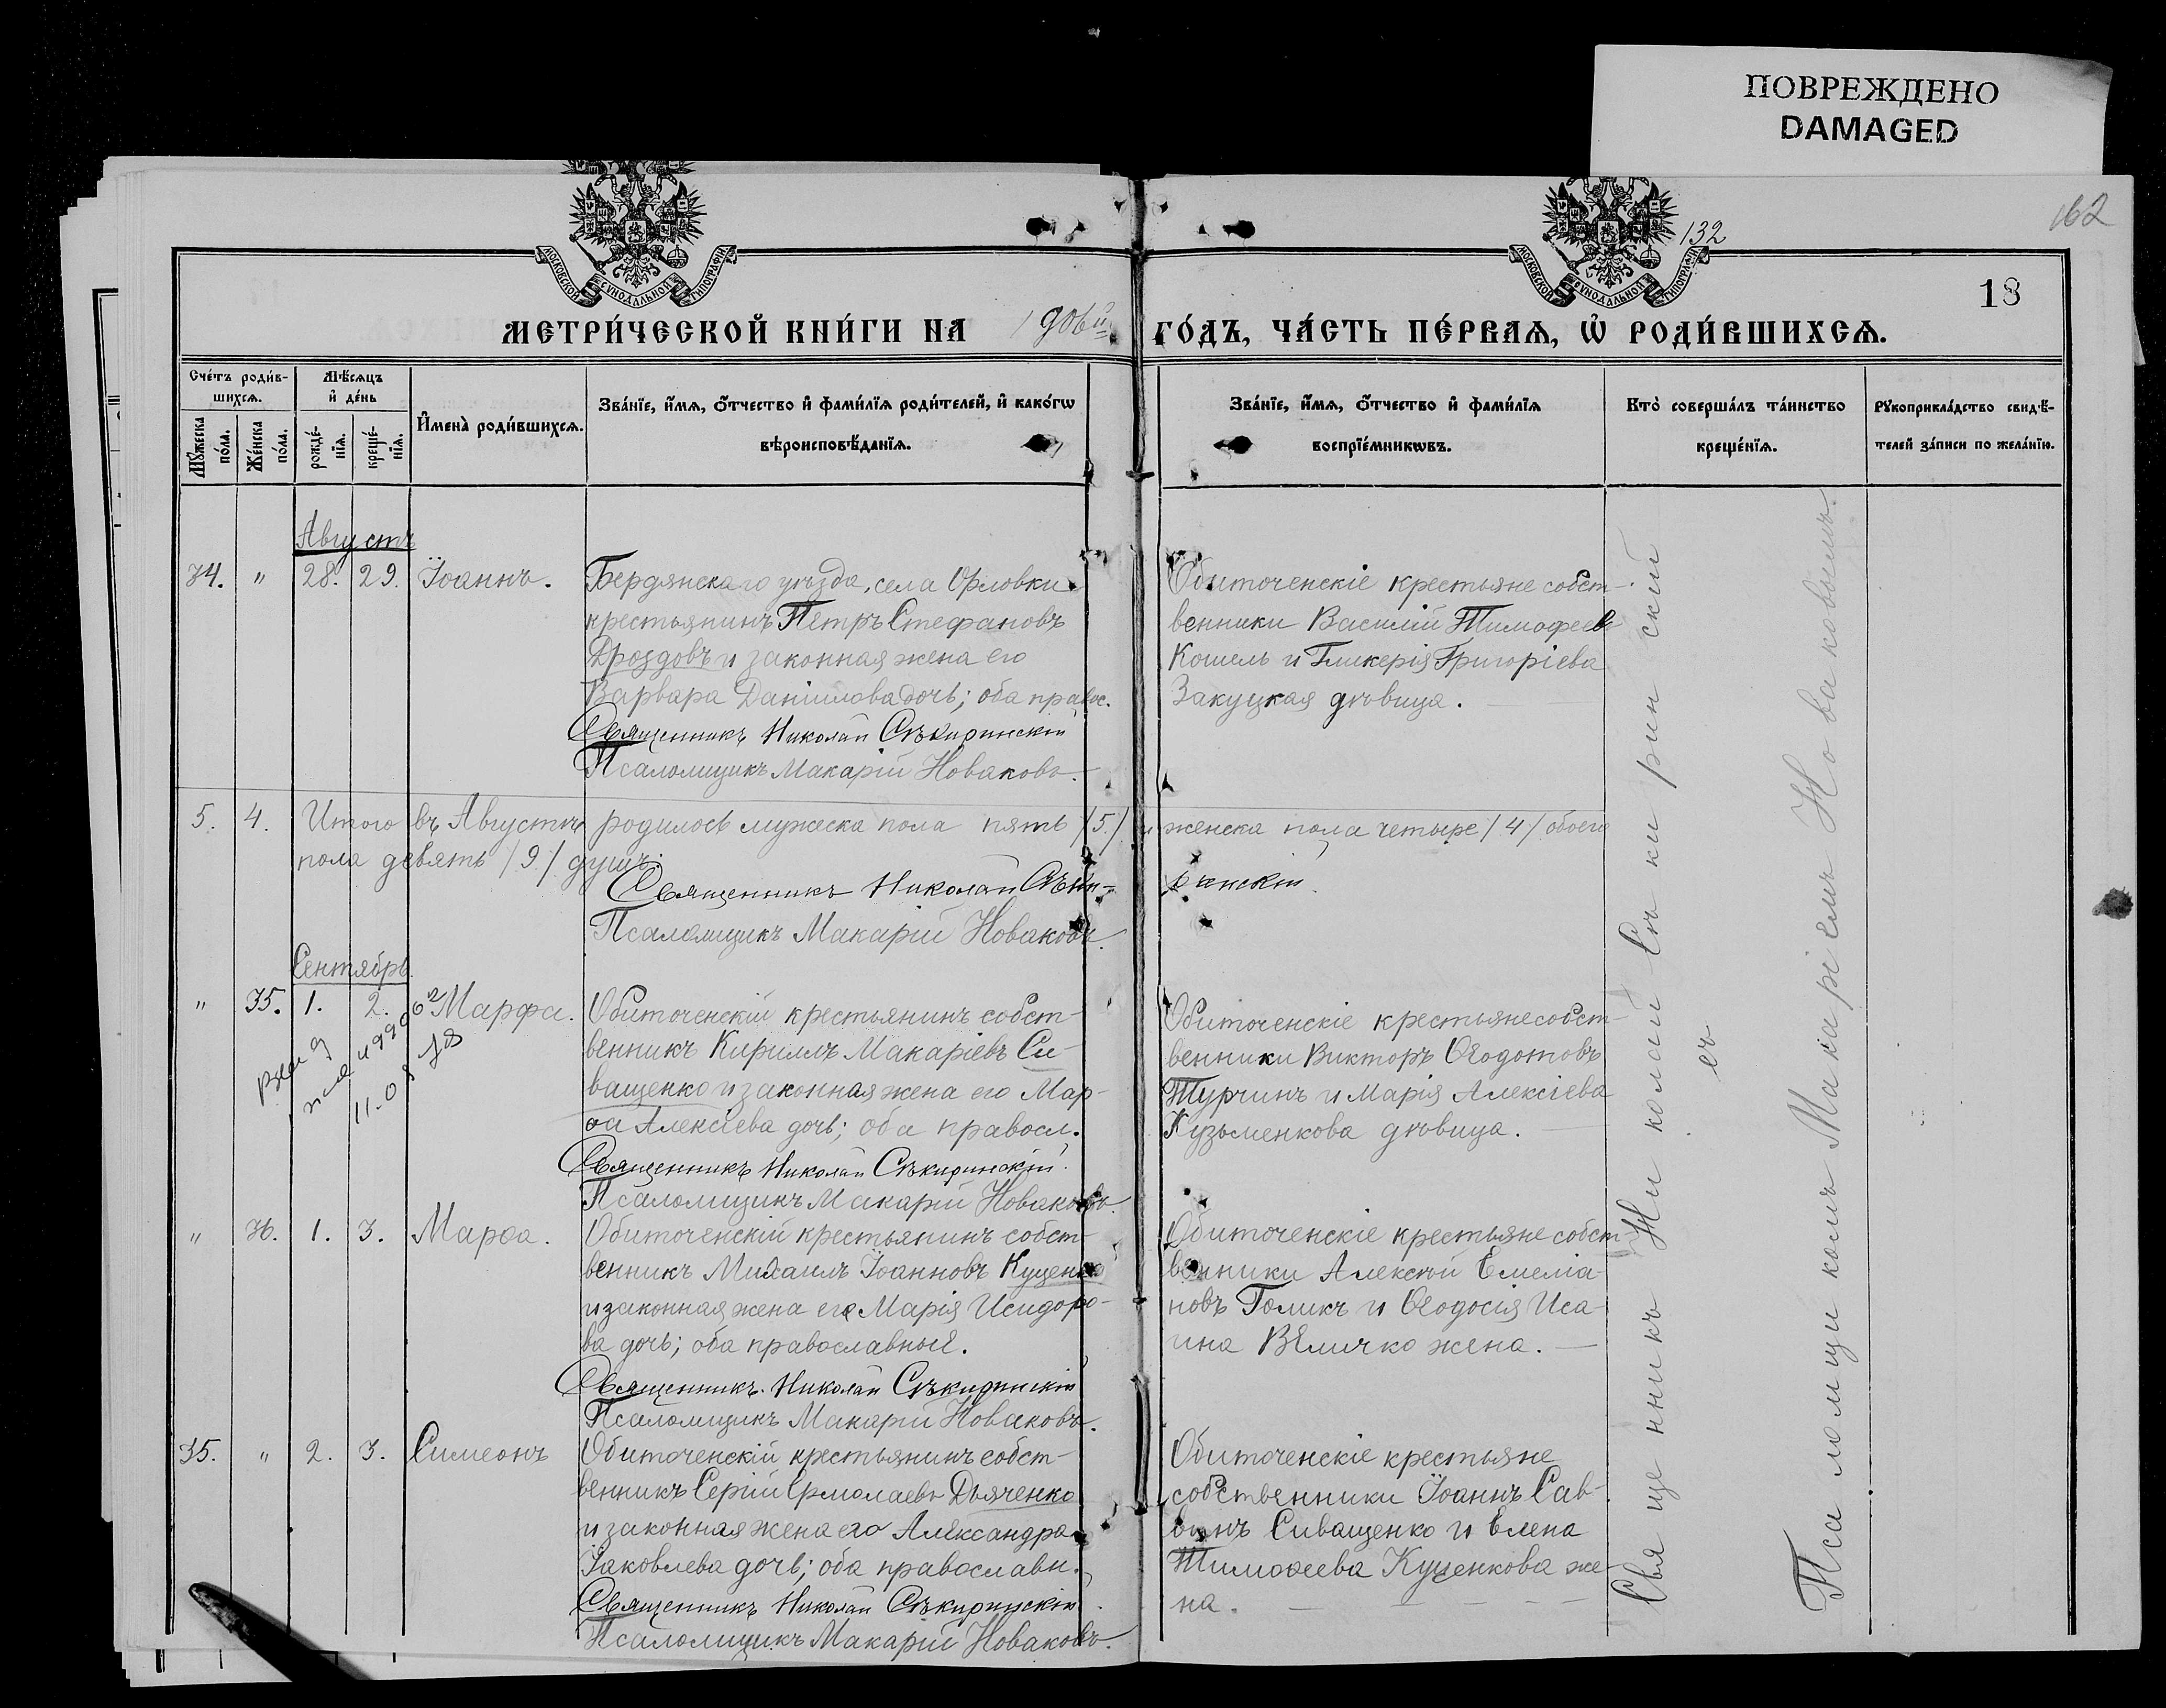 ПОВРЕЖДЕНО
DAMAGED
162
132
18
МОСКОВСКОЙ СѴНОДАЛЬНОЙ ТИПОГРАФІИ
МОСКОВСКОЙ СѴНОДАЛЬНОЙ ТИПОГРАФІИ
МЕТРИ́ЧЕСКОЙ КНИ́ГИ НА ГО́ДЪ, ЧА́СТЬ ПЕ́РВАѦ, Ѡ҆ РОДИ́ВШИХСѦ.
Сче́тъ роди́в-
шихсѧ.
Мꙋ́жеска по́ла.
Же́нска по́ла.
Мѣ́сѧцъ
и҆ де́нь
рожде́-
нїѧ.
креще́-
нїѧ.
И҆мена̀ роди́вшихсѧ.
Зва́нїе, и҆́мѧ, ѻ҆́тчество и҆ фами́лїѧ роди́телей, и҆ како́гѡ
вѣроисповѣ́данїѧ.
Зва́нїе, и҆́мѧ, ѻ҆́тчество и҆ фами́лїѧ
воспрїе́мникѡвъ.
Кто̀ соверша́лъ та́инство
креще́нїѧ.
Рꙋкоприкла́дство свидѣ́-
телей за́писи по жела́нїю.
Августъ
34. " 28. 29. Іоаннъ.
Бердянскаго уѣзда, села Орловки
крестьянинъ Петръ Стефановъ
Дроздовъ и законная жена его
Варвара Даніилова дочь; оба правос.
Священникъ Николай Сѣкиринскій
Псаломщикъ Макарій Новаковъ.
Обиточенскіе крестьяне собст-
венники Василій Тимофеев
Кошель и Гликерія Григоріева
Закуцкая дѣвица.
5. 4. Итого въ Августѣ родилось мужеска пола пять /5/ и женска пола четыре /4/ обоего
пола девять /9/ душъ.
Священникъ Николай Сѣки-
ринскій.
Псаломщикъ Макарій Новаковъ.
Сентябрь.
" 35. 1. 2. Марфа.
Обиточенскій крестьянинъ собст-
венникъ Кириллъ Макаріевъ Си-
ващенко и законная жена его Мар-
ѳа Алексіева дочь; оба правосл.
Священникъ Николай Сѣкиринскій.
Псаломщикъ Макарій Новаковъ.
Обиточенскіе крестьяне собст-
венники Викторъ Ѳеодотовъ
Турчинъ и Марія Алексіева
Кузьменкова дѣвица.
" 36. 1. 3. Марѳа.
Обиточенскій крестьянинъ собст-
венникъ Михаилъ Іоанновъ Куценко
и законная жена его Марія Исидоро-
ва дочь; оба православные.
Священникъ Николай Сѣкиринскій
Псаломщикъ Макарій Новаковъ.
Обиточенскіе крестьяне собст-
венники Алексѣй Емеліа-
новъ Голикъ и Ѳеодосія Иса-
ина Величко жена.
35. " 2. 3. Симеонъ
Обиточенскій крестьянинъ собст-
венникъ Сергій Ермолаевъ Дьяченко
и законная жена его Александра
Іаковлева дочь; оба православн.
Священникъ Николай Сѣкиринскій
Псаломщикъ Макарій Новаковъ.
Обиточенскіе крестьяне
собственники Іоаннъ Сав-
винъ Сиващенко и Елена
Тимоѳеева Куценкова же-
на.
Священникъ Николай Сѣкиринскій
съ
Псаломщикомъ Макаріемъ Новаковымъ.